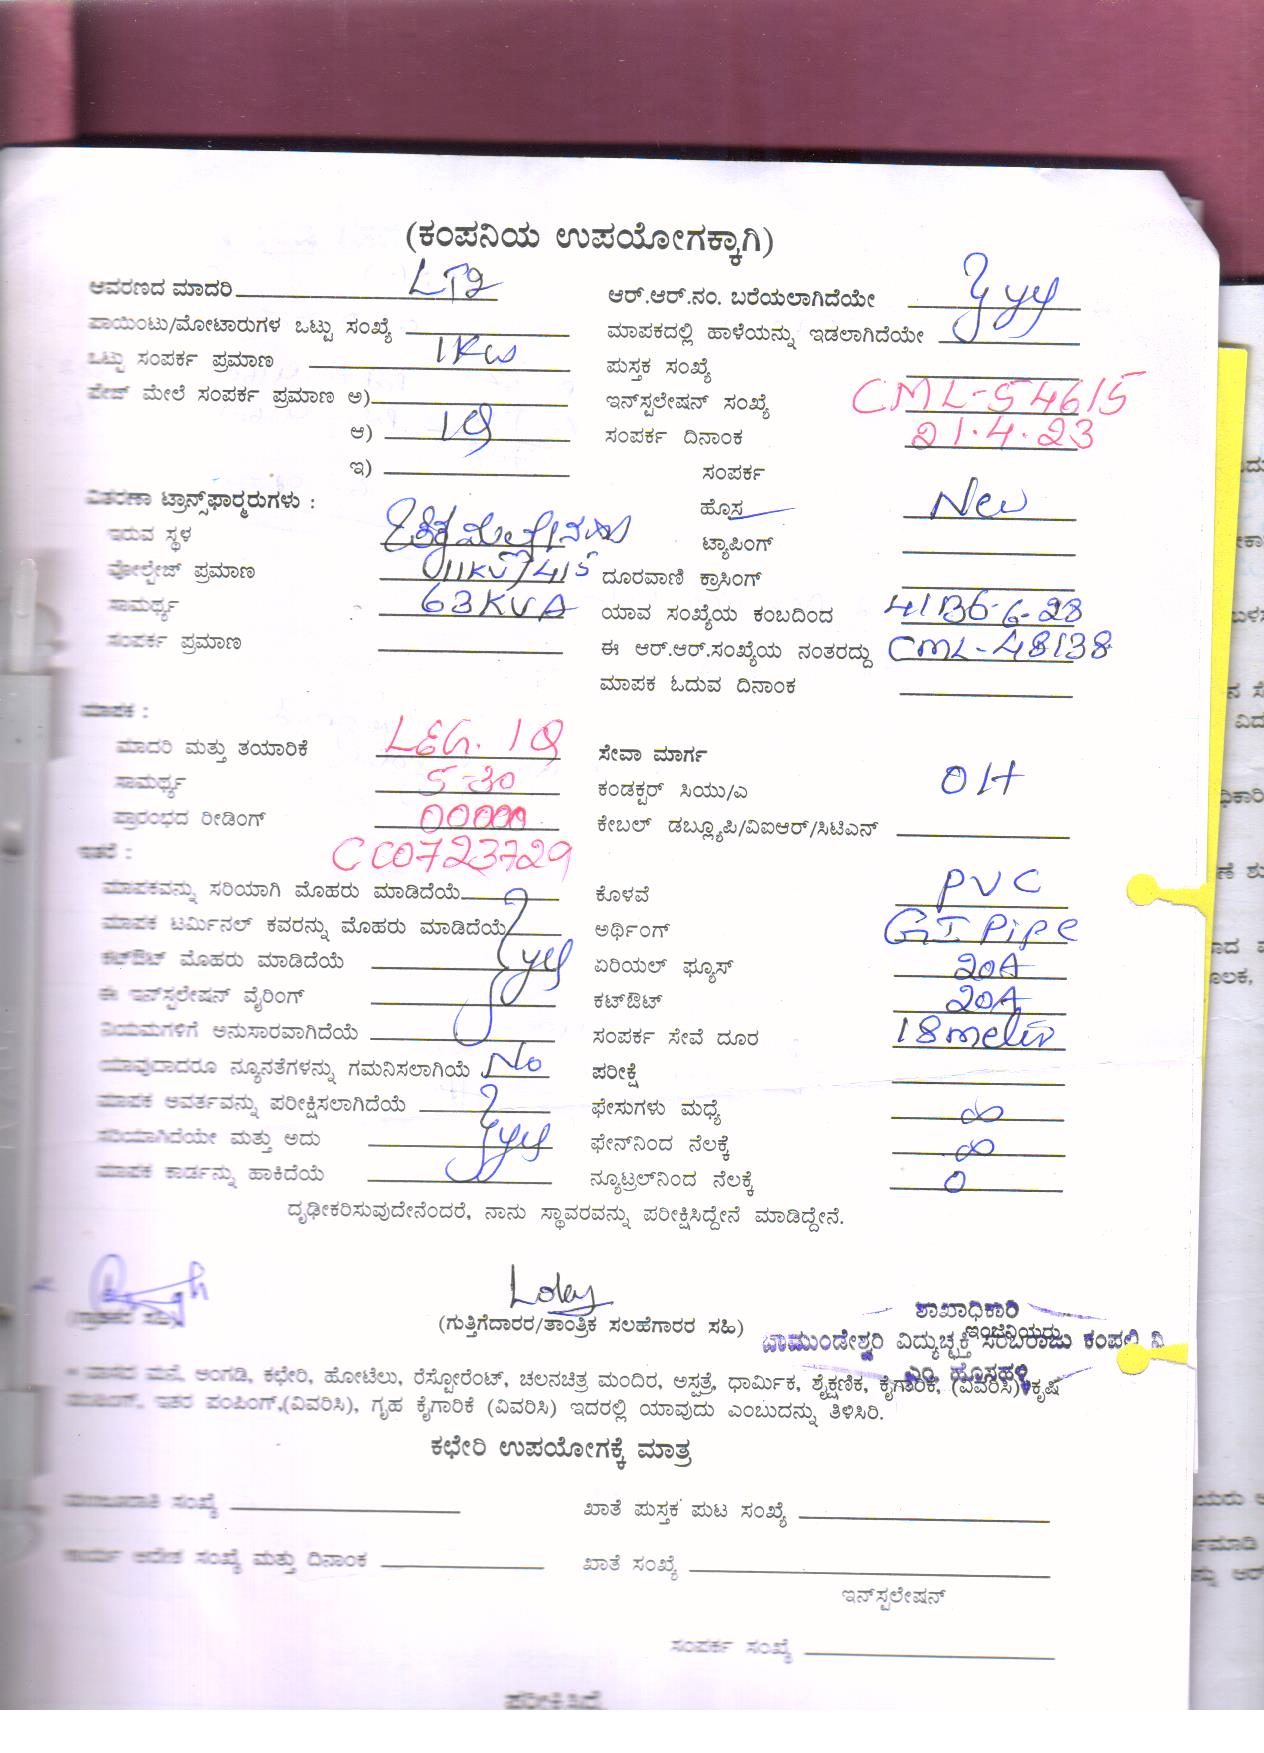 (ಕಂಪನಿಯ ಉಪಯೋಗಕ್ಕಾಗಿ)
ಆವರಣದ ಮಾದರಿ LT2 ಆರ್.ಆರ್.ನಂ. ಬರೆಯಲಾಗಿದೆಯೇ yes
ಪಾಯಿಂಟು/ಮೋಟಾರುಗಳ ಒಟ್ಟು ಸಂಖ್ಯೆ ಮಾಪಕದಲ್ಲಿ ಹಾಳೆಯನ್ನು ಇಡಲಾಗಿದೆಯೇ
ಒಟ್ಟು ಸಂಪರ್ಕ ಪ್ರಮಾಣ 1KW ಪುಸ್ತಕ ಸಂಖ್ಯೆ
ಪೇಜ್ ಮೇಲೆ ಸಂಪರ್ಕ ಪ್ರಮಾಣ ಅ) ಇನ್‌ಸ್ಟಲೇಷನ್ ಸಂಖ್ಯೆ CML-54615
ಆ) ಸಂಪರ್ಕ ದಿನಾಂಕ 21.4.23
ಇ) ಸಂಪರ್ಕ
ವಿತರಣಾ ಟ್ರಾನ್ಸ್‌ಫಾರ್ಮರುಗಳು : ಹೊಸ New
ಇರುವ ಸ್ಥಳ ಟ್ಯಾಪಿಂಗ್
ವೋಲ್ಟೇಜ್ ಪ್ರಮಾಣ 11KV/415 ದೂರವಾಣಿ ಕ್ರಾಸಿಂಗ್
ಸಾಮರ್ಥ್ಯ 63KVA ಯಾವ ಸಂಖ್ಯೆಯ ಕಂಬದಿಂದ
ಸಂಪರ್ಕ ಪ್ರಮಾಣ ಈ ಆರ್.ಆರ್.ಸಂಖ್ಯೆಯ ನಂತರದ್ದು CML-48138
ಮಾಪಕ ಓದುವ ದಿನಾಂಕ
ಮಾಪಕ :
ಮಾದರಿ ಮತ್ತು ತಯಾರಿಕೆ ಸೇವಾ ಮಾರ್ಗ
ಸಾಮರ್ಥ್ಯ 5-30 ಕಂಡಕ್ಟರ್ ಸಿಯು/ಎ OH
ಪ್ರಾರಂಭದ ರೀಡಿಂಗ್ 00000 ಕೇಬಲ್ ಡಬ್ಲ್ಯೂಪಿ/ವಿಐಆರ್/ಸಿಟಿಎನ್
ಇತರೆ : CC0723729
ಮಾಪಕವನ್ನು ಸರಿಯಾಗಿ ಮೊಹರು ಮಾಡಿದೆಯೆ ಕೊಳವೆ PVC
ಮಾಪಕ ಟರ್ಮಿನಲ್ ಕವರನ್ನು ಮೊಹರು ಮಾಡಿದೆಯೆ ಅರ್ಥಿಂಗ್ GI Pipe
ಕಟ್‌ಔಟ್ ಮೊಹರು ಮಾಡಿದೆಯೆ yes ಏರಿಯಲ್ ಫ್ಯೂಸ್ 20A
ಈ ಇನ್‌ಸ್ಟಲೇಷನ್ ವೈರಿಂಗ್ ಕಟ್‌ಔಟ್ 20A
ನಿಯಮಗಳಿಗೆ ಅನುಸಾರವಾಗಿದೆಯೆ ಸಂಪರ್ಕ ಸೇವೆ ದೂರ 18meter
ಯಾವುದಾದರೂ ನ್ಯೂನತೆಗಳನ್ನು ಗಮನಿಸಲಾಗಿಯೆ No ಪರೀಕ್ಷೆ
ಮಾಪಕ ಅವರ್ತವನ್ನು ಪರೀಕ್ಷಿಸಲಾಗಿದೆಯೆ ಫೇಸುಗಳು ಮಧ್ಯೆ ∞
ಸರಿಯಾಗಿದೆಯೇ ಮತ್ತು ಅದು yes ಫೇಸ್‌ನಿಂದ ನೆಲಕ್ಕೆ ∞
ಮಾಪಕ ಕಾರ್ಡನ್ನು ಹಾಕಿದೆಯೆ ನ್ಯೂಟ್ರಲ್‌ನಿಂದ ನೆಲಕ್ಕೆ 0
ದೃಢೀಕರಿಸುವುದೇನೆಂದರೆ, ನಾನು ಸ್ಥಾವರವನ್ನು ಪರೀಕ್ಷಿಸಿದ್ದೇನೆ ಮಾಡಿದ್ದೇನೆ.
ಶಾಖಾಧಿಕಾರಿ
(ಗ್ರಾಹಕರ ಸಹಿ) (ಗುತ್ತಿಗೆದಾರರ/ತಾಂತ್ರಿಕ ಸಲಹೆಗಾರರ ಸಹಿ) ಇಂಜಿನಿಯರು
ಚಾಮುಂಡೇಶ್ವರಿ ವಿದ್ಯುಚ್ಛಕ್ತಿ ಸರಬರಾಜು ಕಂಪನಿ ನಿ
ಎಂ. ಹೊಸಹಳ್ಳಿ
ವಾಸದ ಮನೆ, ಅಂಗಡಿ, ಕಛೇರಿ, ಹೋಟೆಲು, ರೆಸ್ಟೋರೆಂಟ್, ಚಲನಚಿತ್ರ ಮಂದಿರ, ಅಸ್ಪತ್ರೆ, ಧಾರ್ಮಿಕ, ಶೈಕ್ಷಣಿಕ, ಕೈಗಾರಿಕೆ, (ವಿವರಿಸಿ) ಕೃಷಿ
ಇತರ ಪಂಪಿಂಗ್,(ವಿವರಿಸಿ), ಗೃಹ ಕೈಗಾರಿಕೆ (ವಿವರಿಸಿ) ಇದರಲ್ಲಿ ಯಾವುದು ಎಂಬುದನ್ನು ತಿಳಿಸಿರಿ.
ಕಛೇರಿ ಉಪಯೋಗಕ್ಕೆ ಮಾತ್ರ
ಮಂಜೂರಾತಿ ಸಂಖ್ಯೆ ಖಾತೆ ಪುಸ್ತಕ ಪುಟ ಸಂಖ್ಯೆ
ಕಾರ್ಯ ಆದೇಶ ಸಂಖ್ಯೆ ಮತ್ತು ದಿನಾಂಕ ಖಾತೆ ಸಂಖ್ಯೆ
ಇನ್‌ಸ್ಟಲೇಷನ್
ಸಂಪರ್ಕ ಸಂಖ್ಯೆ
ಪರೀಕ್ಷಿಸಿದೆ